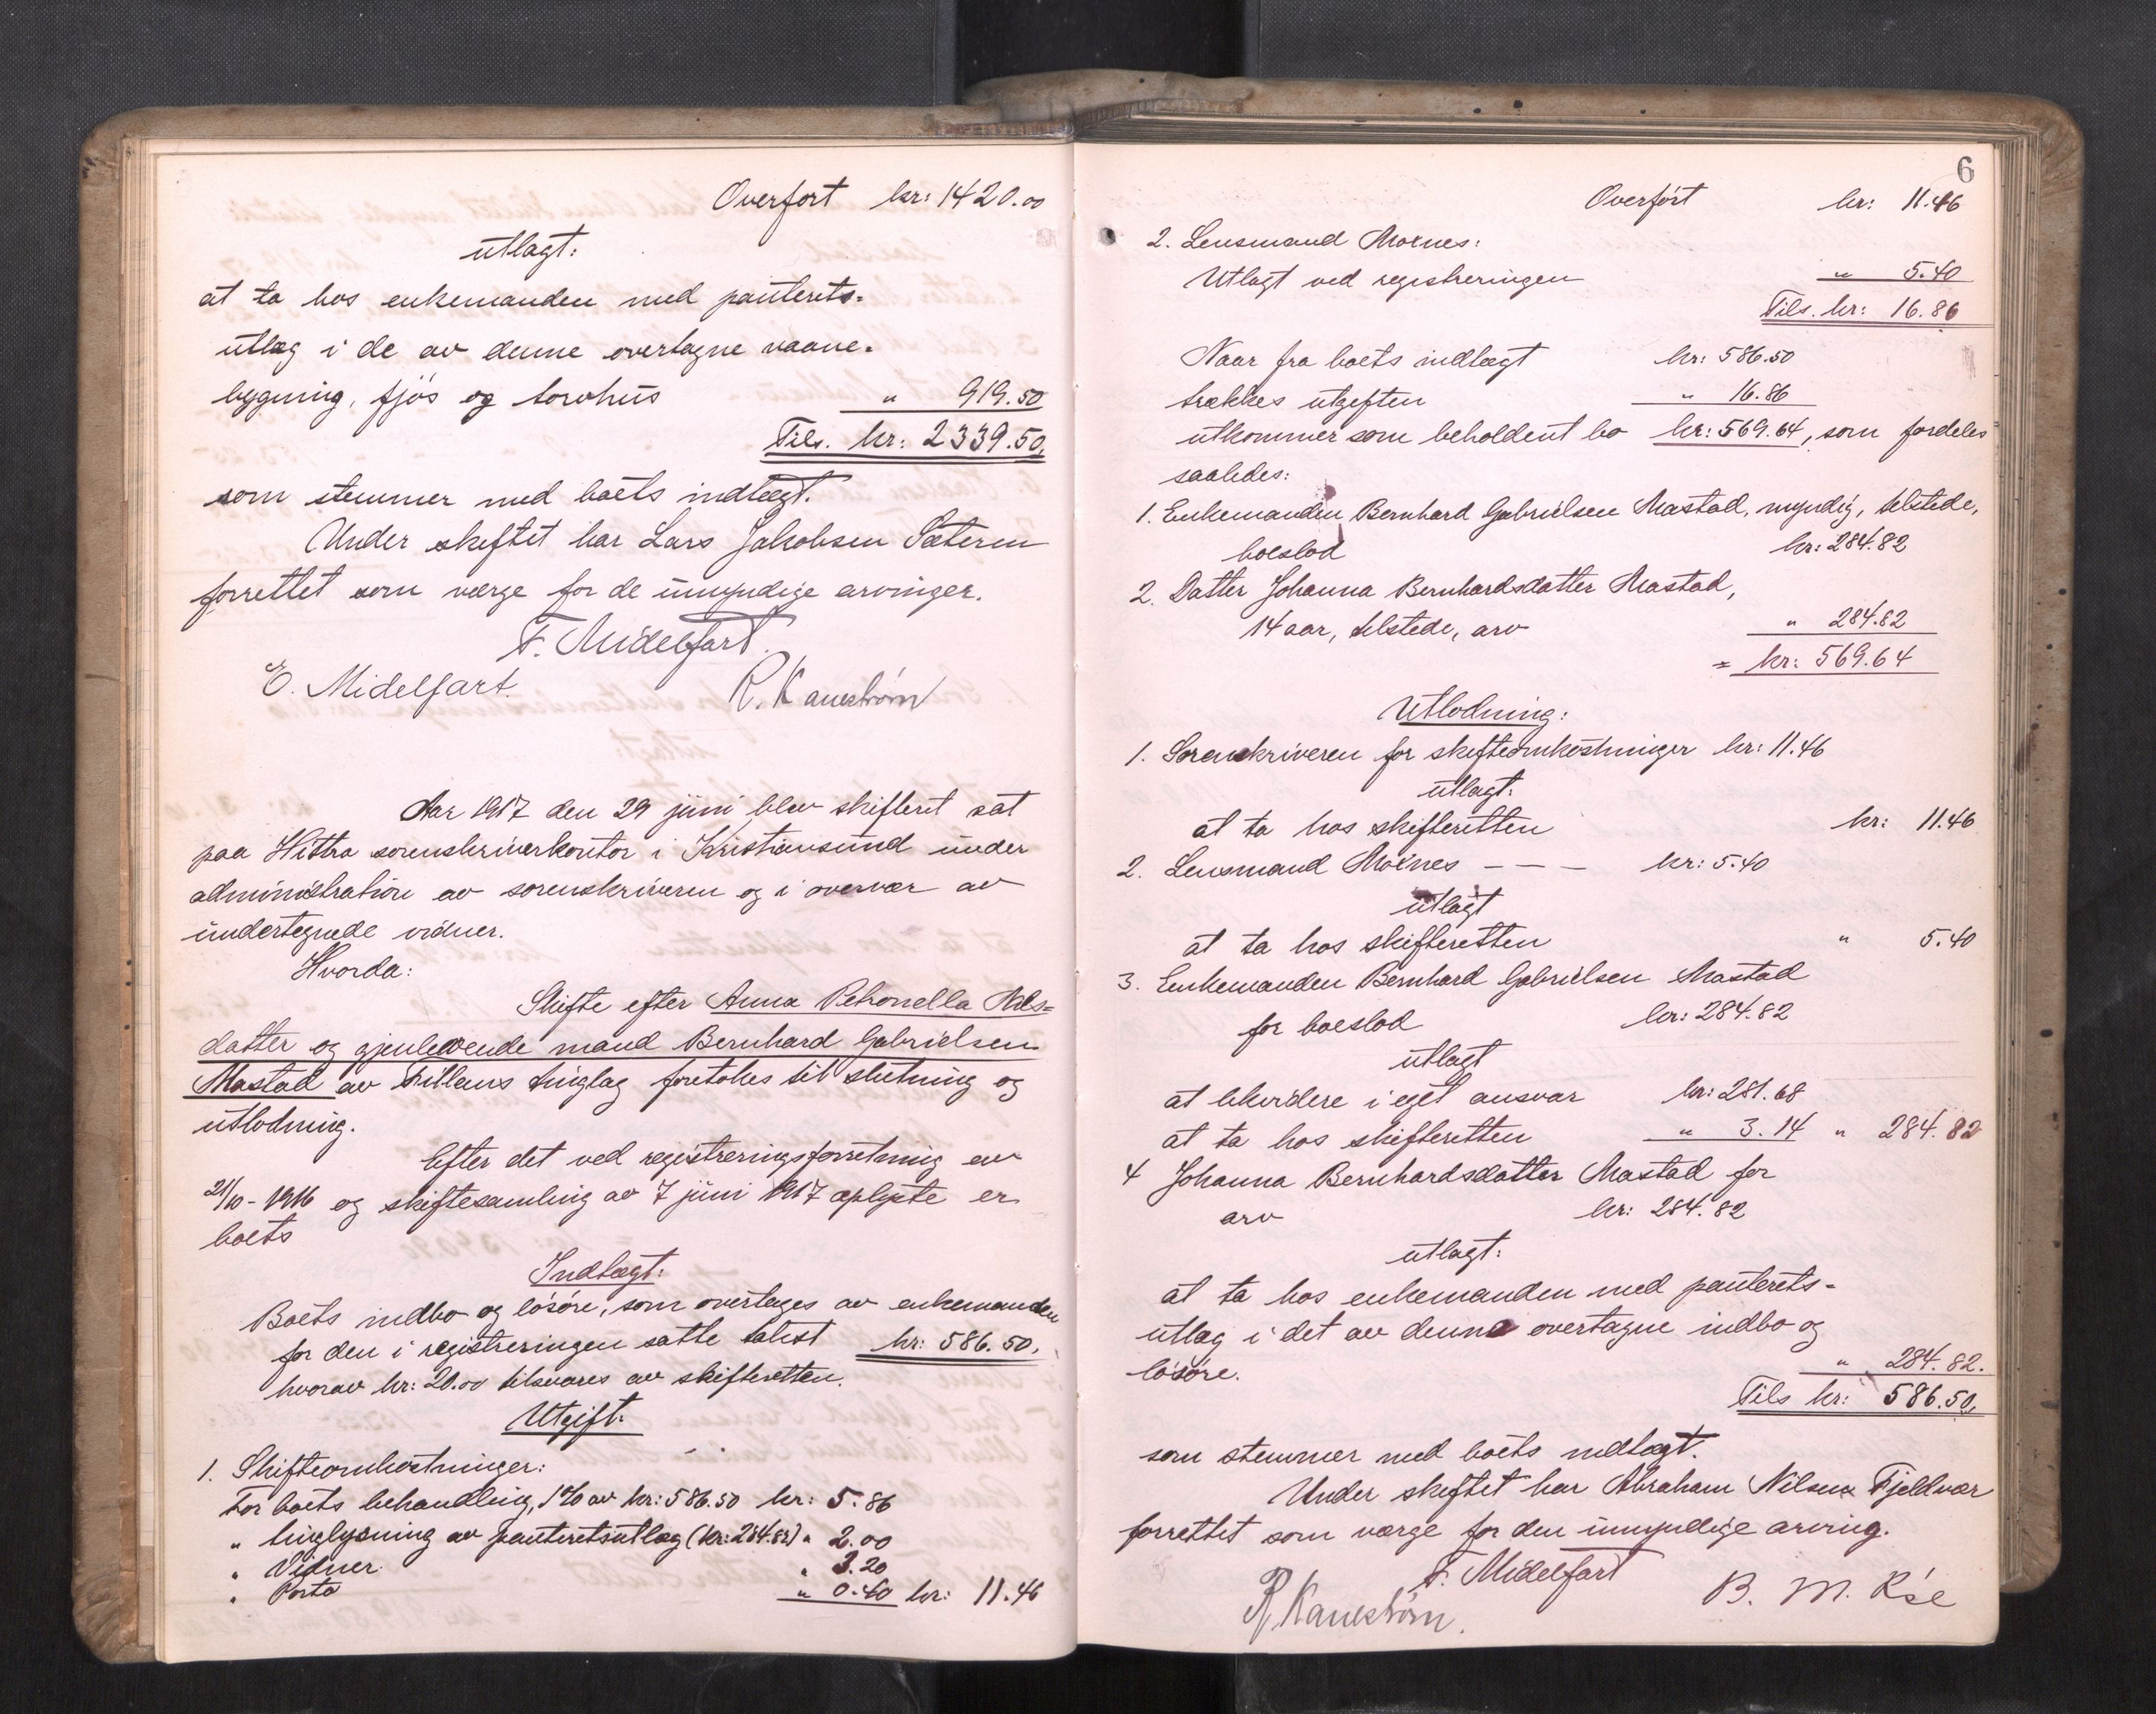 Overført kr: 1420.00
utlagt:
at ta hos enkemanden med panterets-
utlæg i de av denne overtagne vaane-
bygning, fjøs og torvhus " 919.50
Tils. kr: 2339.50,
som stemmer med boets indtægt.
Under skiftet har Lars Jakobsen Sæteren
forrettet som værge for de umyndige arvinger.
F. Midelfart.
E. Midelfart. R. Kanestrøm
Aar 1917 den 29 juni blev skifteret sat
paa Hittra sorenskriverkontor i Kristiansund under
administration av sorenskriveren og i overvær av
undertegnede vidner.
Hvorda:
Skifte efter Anna Petronella Nils-
datter og gjenlevende mand Bernhard Gabrielsen
Mastad av Fillans tinglag foretokes til slutning og
utlodning.
Efter det ved registreringsforretning av
21/10-1916 og skiftesamling av 7 juni 1917 oplyste er
boets
Indtægt:
Boets indbo og løsøre, som overtages av enkemanden
for den i registreringen satte takst kr: 586.50,
hvorav kr: 20.00 tilsvares av skifteretten.
Utgift:
1. Skifteomkostninger:
For boets behandling, 1% av kr: 586.50 kr: 5.86
" tinglysning av panteretsutlæg (kr: 284.82) " 2.00
" Vidner " 3.20
" Porto " 0.40 kr: 11.46
6
Overført kr: 11.46
2. Lensmand Moxnes:
Utlagt ved registreringen " 5.40
Tils. kr: 16.86
Naar fra boets indtægt kr: 586.50
trækkes utgiften " 16.86
utkommer som beholdent bo kr: 569.64, som fordeles
saaledes:
1. Enkemanden Bernhard Gabrielsen Mastad, myndig, tilstede,
boeslod kr: 284.82
2. Datter Johanna Bernhardsdatter Mastad,
14 aar, tilstede, arv " 284.82
= kr: 569.64
Utlodning:
1. Sorenskriveren for skifteomkostninger kr: 11.46
utlagt:
at ta hos skifteretten kr: 11.46
2. Lensmand Moxnes - - - kr: 5.40
utlagt
at ta hos skifteretten " 5.40
3. Enkemanden Bernhard Gabrielsen Mastad
for boeslod kr: 284.82
utlagt
at likvidere i eget ansvar kr: 281.68
at ta hos skifteretten " 3.14 " 284.82
4 Johanna Bernhardsdatter Mastad for
arv kr: 284.82
utlagt:
at ta hos enkemanden med panterets-
utlæg i det av denne overtagne indbo og
løsøre. " 284.82.
Tils kr: 586.50,
som stemmer med boets indtægt.
Under skiftet har Abraham Nilsen Fjeldvær
forrettet som værge for den umyndige arving.
F. Midelfart
R. Kanestrøm. B. M.